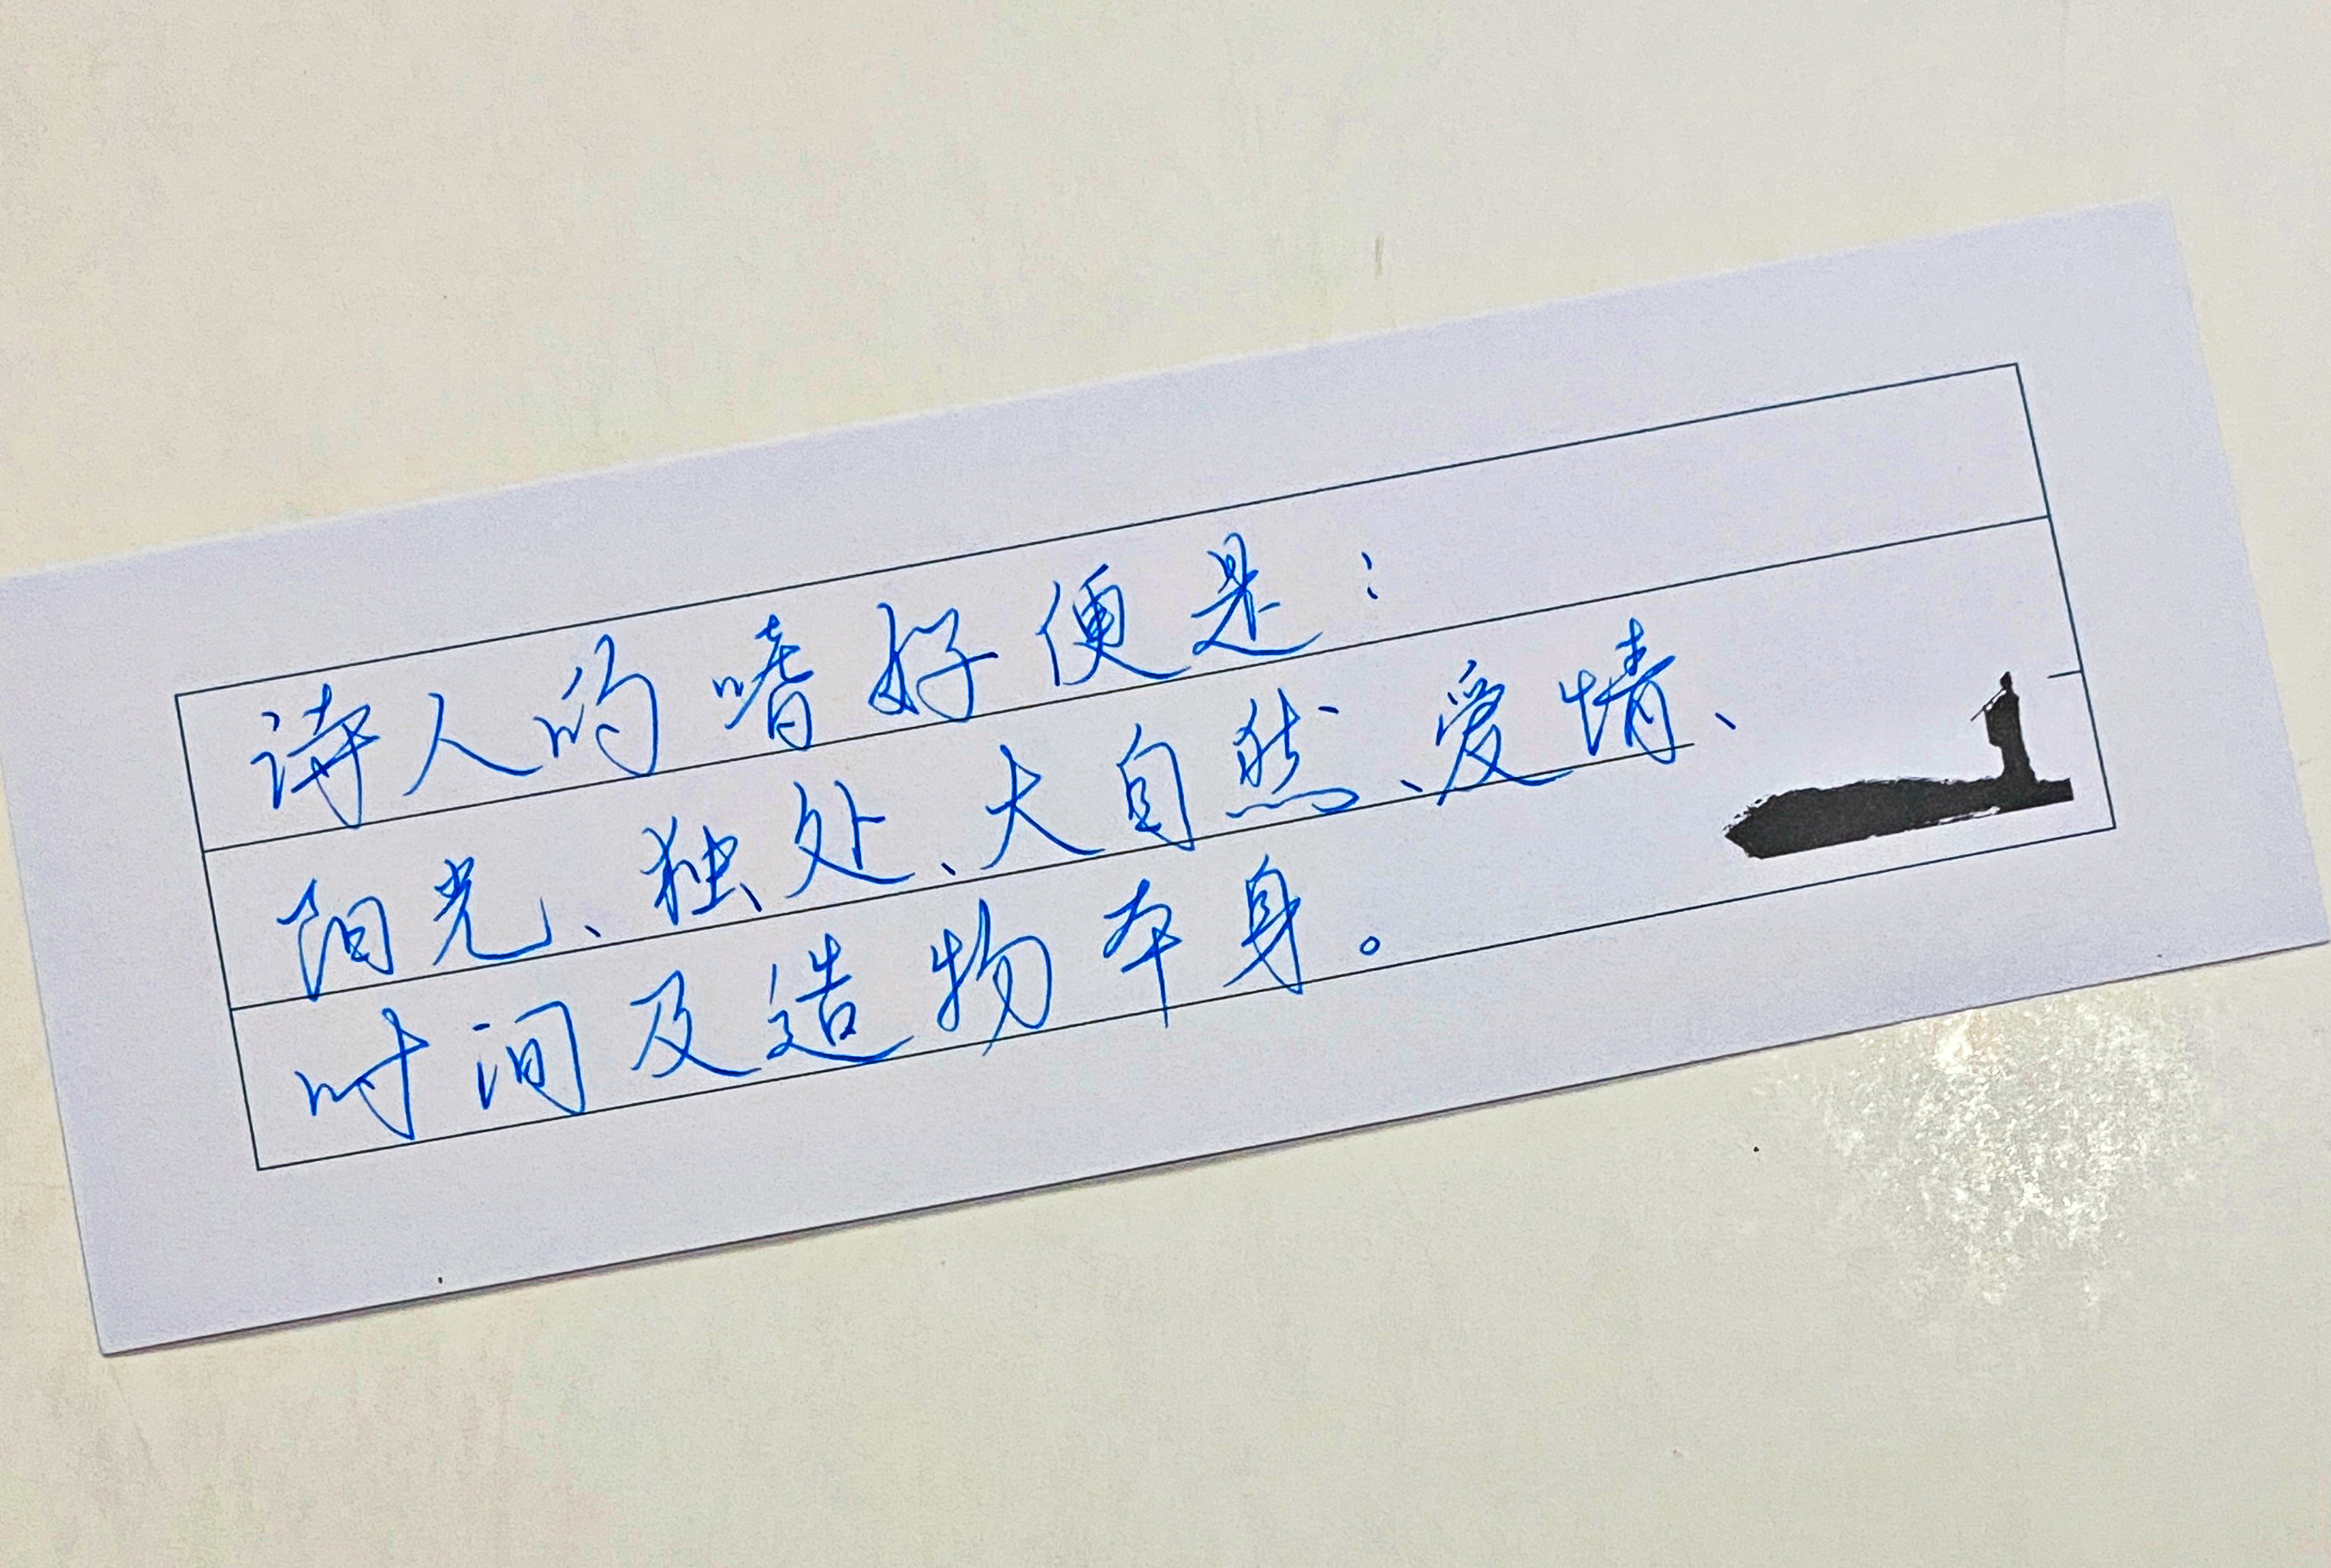 诗人的嗜好便是：
阳光、独处、大自然、爱情、
时间及造物本身。